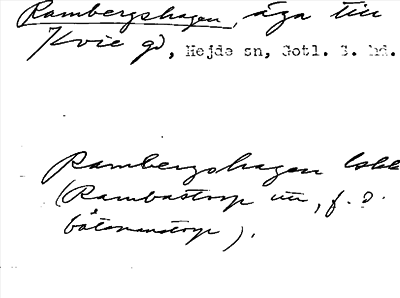 Rambergshagen, äga till
Kvie gd, Hejde sn, Gotl. S. hd.
Rambergshagen
(Rambastorp un, f. d.
båtsmanstorp).